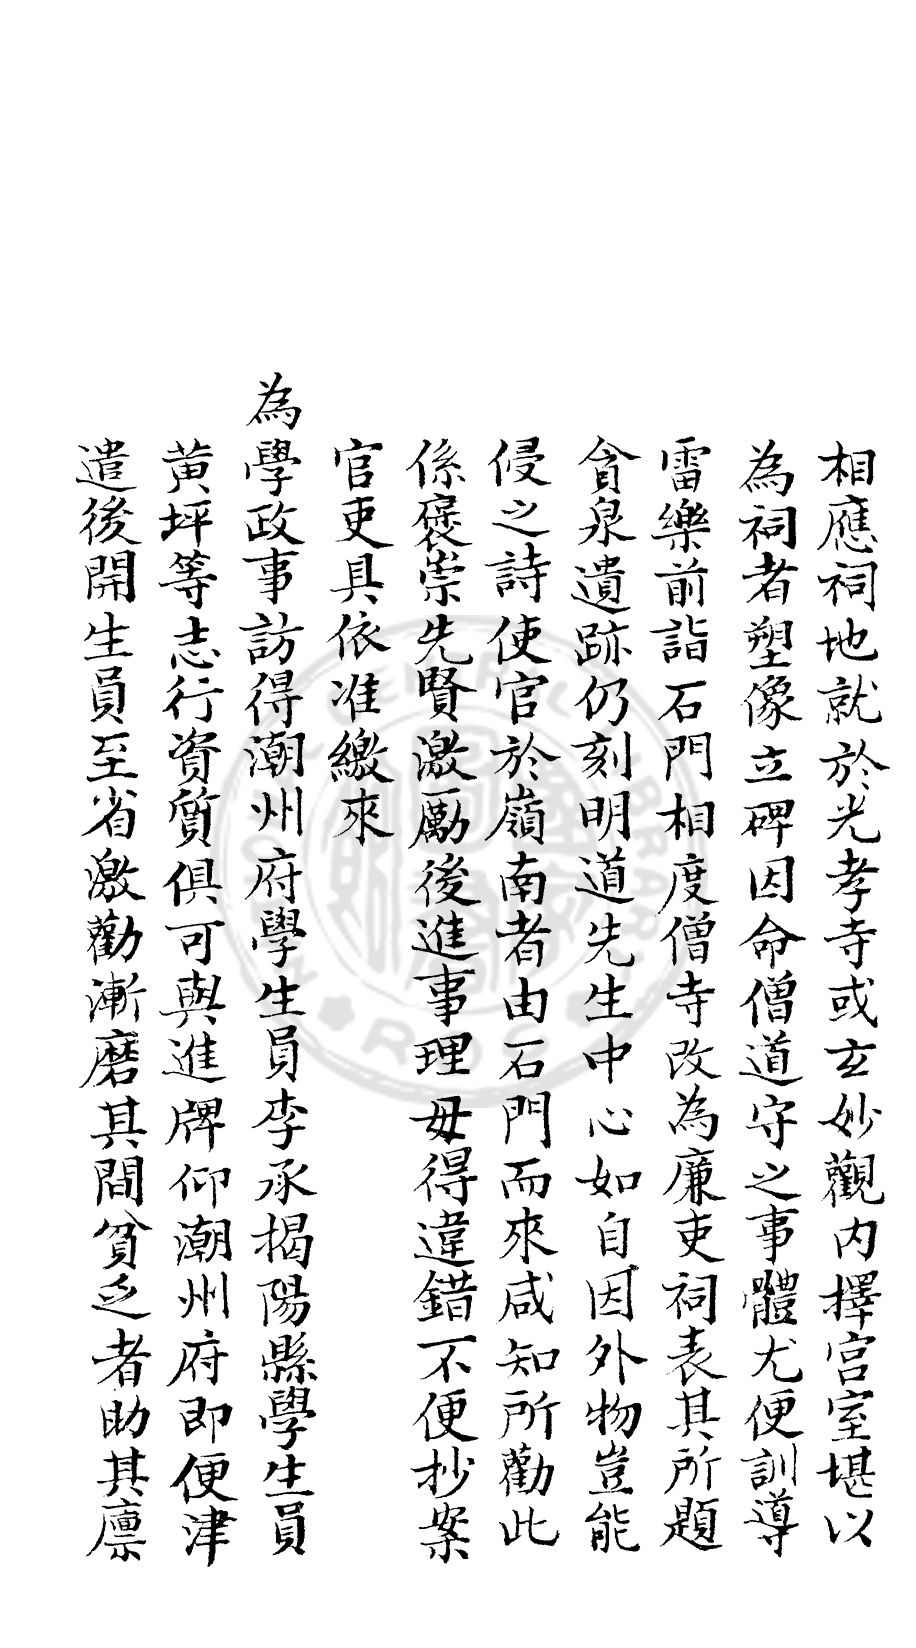 相應祠地就於光孝寺或玄妙觀內擇宫室堪以
為祠者塑像立碑因命僧道守之事體尤便訓導
雷樂前詣石門相度僧寺改為廉吏祠表其所題
貪泉遺跡仍刻明道先生中心如自因外物豈能
侵之詩使官於嶺南者由石門而來咸知所勸此
係褒崇先賢激厲後進事理毋得違錯不便抄案
官吏具依准繳來
為學政事訪得潮州府學生員李承揭陽縣學生員
黃坪等志行資質俱可與進牌仰潮州府即便津
遣後開生員至省激勸漸磨其間貧乏者助其廩